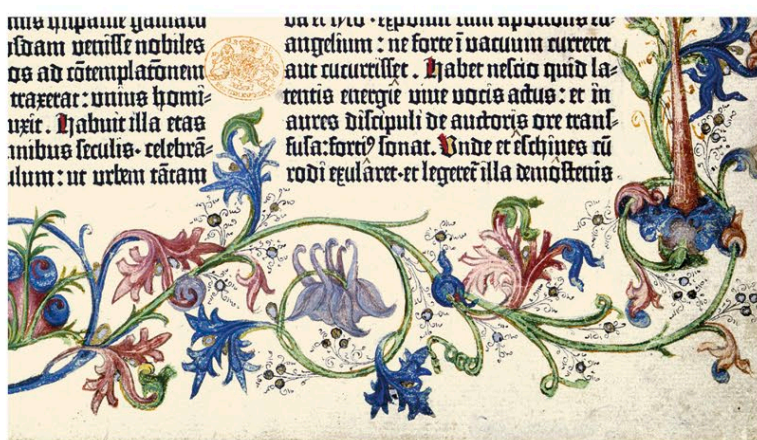 nus hispanie galliarū
usdam venisse nobiles
os ad cōtemplatōnem
traxerat: unius homi⸗
uxit. Habuit illa etas
mnibus seculis. celebrā⸗
ulum: ut urbem tātam
angelium: ne forte ī vacuum curreret
aut cucurrisset. Habet nescio quid la⸗
tentis energiē vive vocis actus: et in
aures discipuli de auctoris ore trans⸗
fusa: forti⁹ sonat. Unde et eschines cū
rodi exularet. et legeret̄ illa demostenis